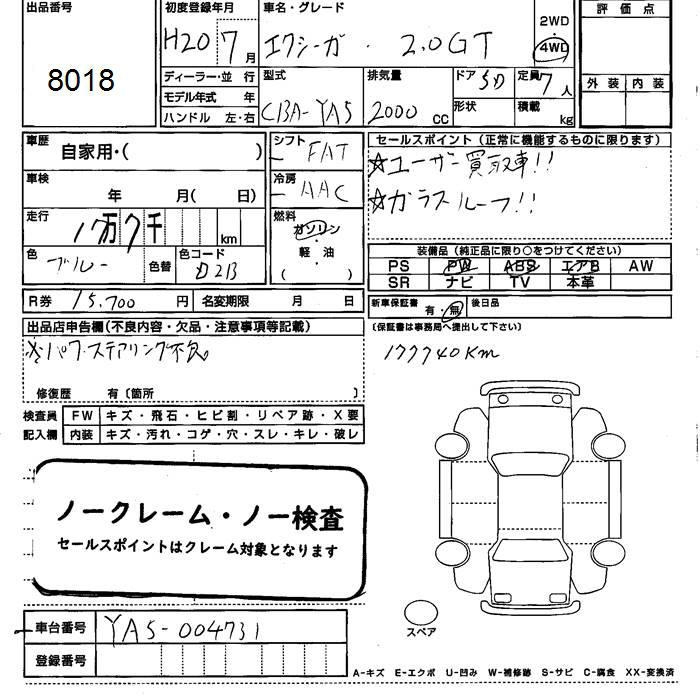 出品番号
8018
初度登録年月
H20 7月
ディーラー・並 行
モデル年式 年
ハンドル 左・右
車名・グレード
エクシーガ・2.0GT
2WD
4WD
型式
CBA-YA5
排気量
2000 CC
ドア 5D
形状
定員 7人
積載 kg
評価点
外装 内装
車歴 自家用・( )
車検 年 月( 日)
走行 17万7千 km
色 ブルー 色替
色コード D2B
シフト FAT
冷房 AAC
燃料
ガソリン
・
軽油
( )
セールスポイント(正常に機能するものに限ります)
☆ユーザー買取車!!
☆ガラスルーフ!!
装備品(純正品に限り○をつけてください)
PS PW ABS エアB AW
SR ナビ TV 本革
R券 15,700 円 名変期限 月 日
新車保証書 有・無 後日品
(保証書は事務局へ提出して下さい)
出品店申告欄(不良内容・欠品・注意事項等記載)
※パワステアリング不良。
177740Km
修復歴 有〔箇所 〕
検査員 FW キズ・飛石・ヒビ割・リペア跡・X要
記入欄 内装 キズ・汚れ・コゲ・穴・スレ・キレ・破レ
ノークレーム・ノー検査
セールスポイントはクレーム対象となります
車台番号 YA5-004731
登録番号
スペア
A-キズ E-エクボ U-凹み W-補修跡 S-サビ C-腐食 XX-変換済